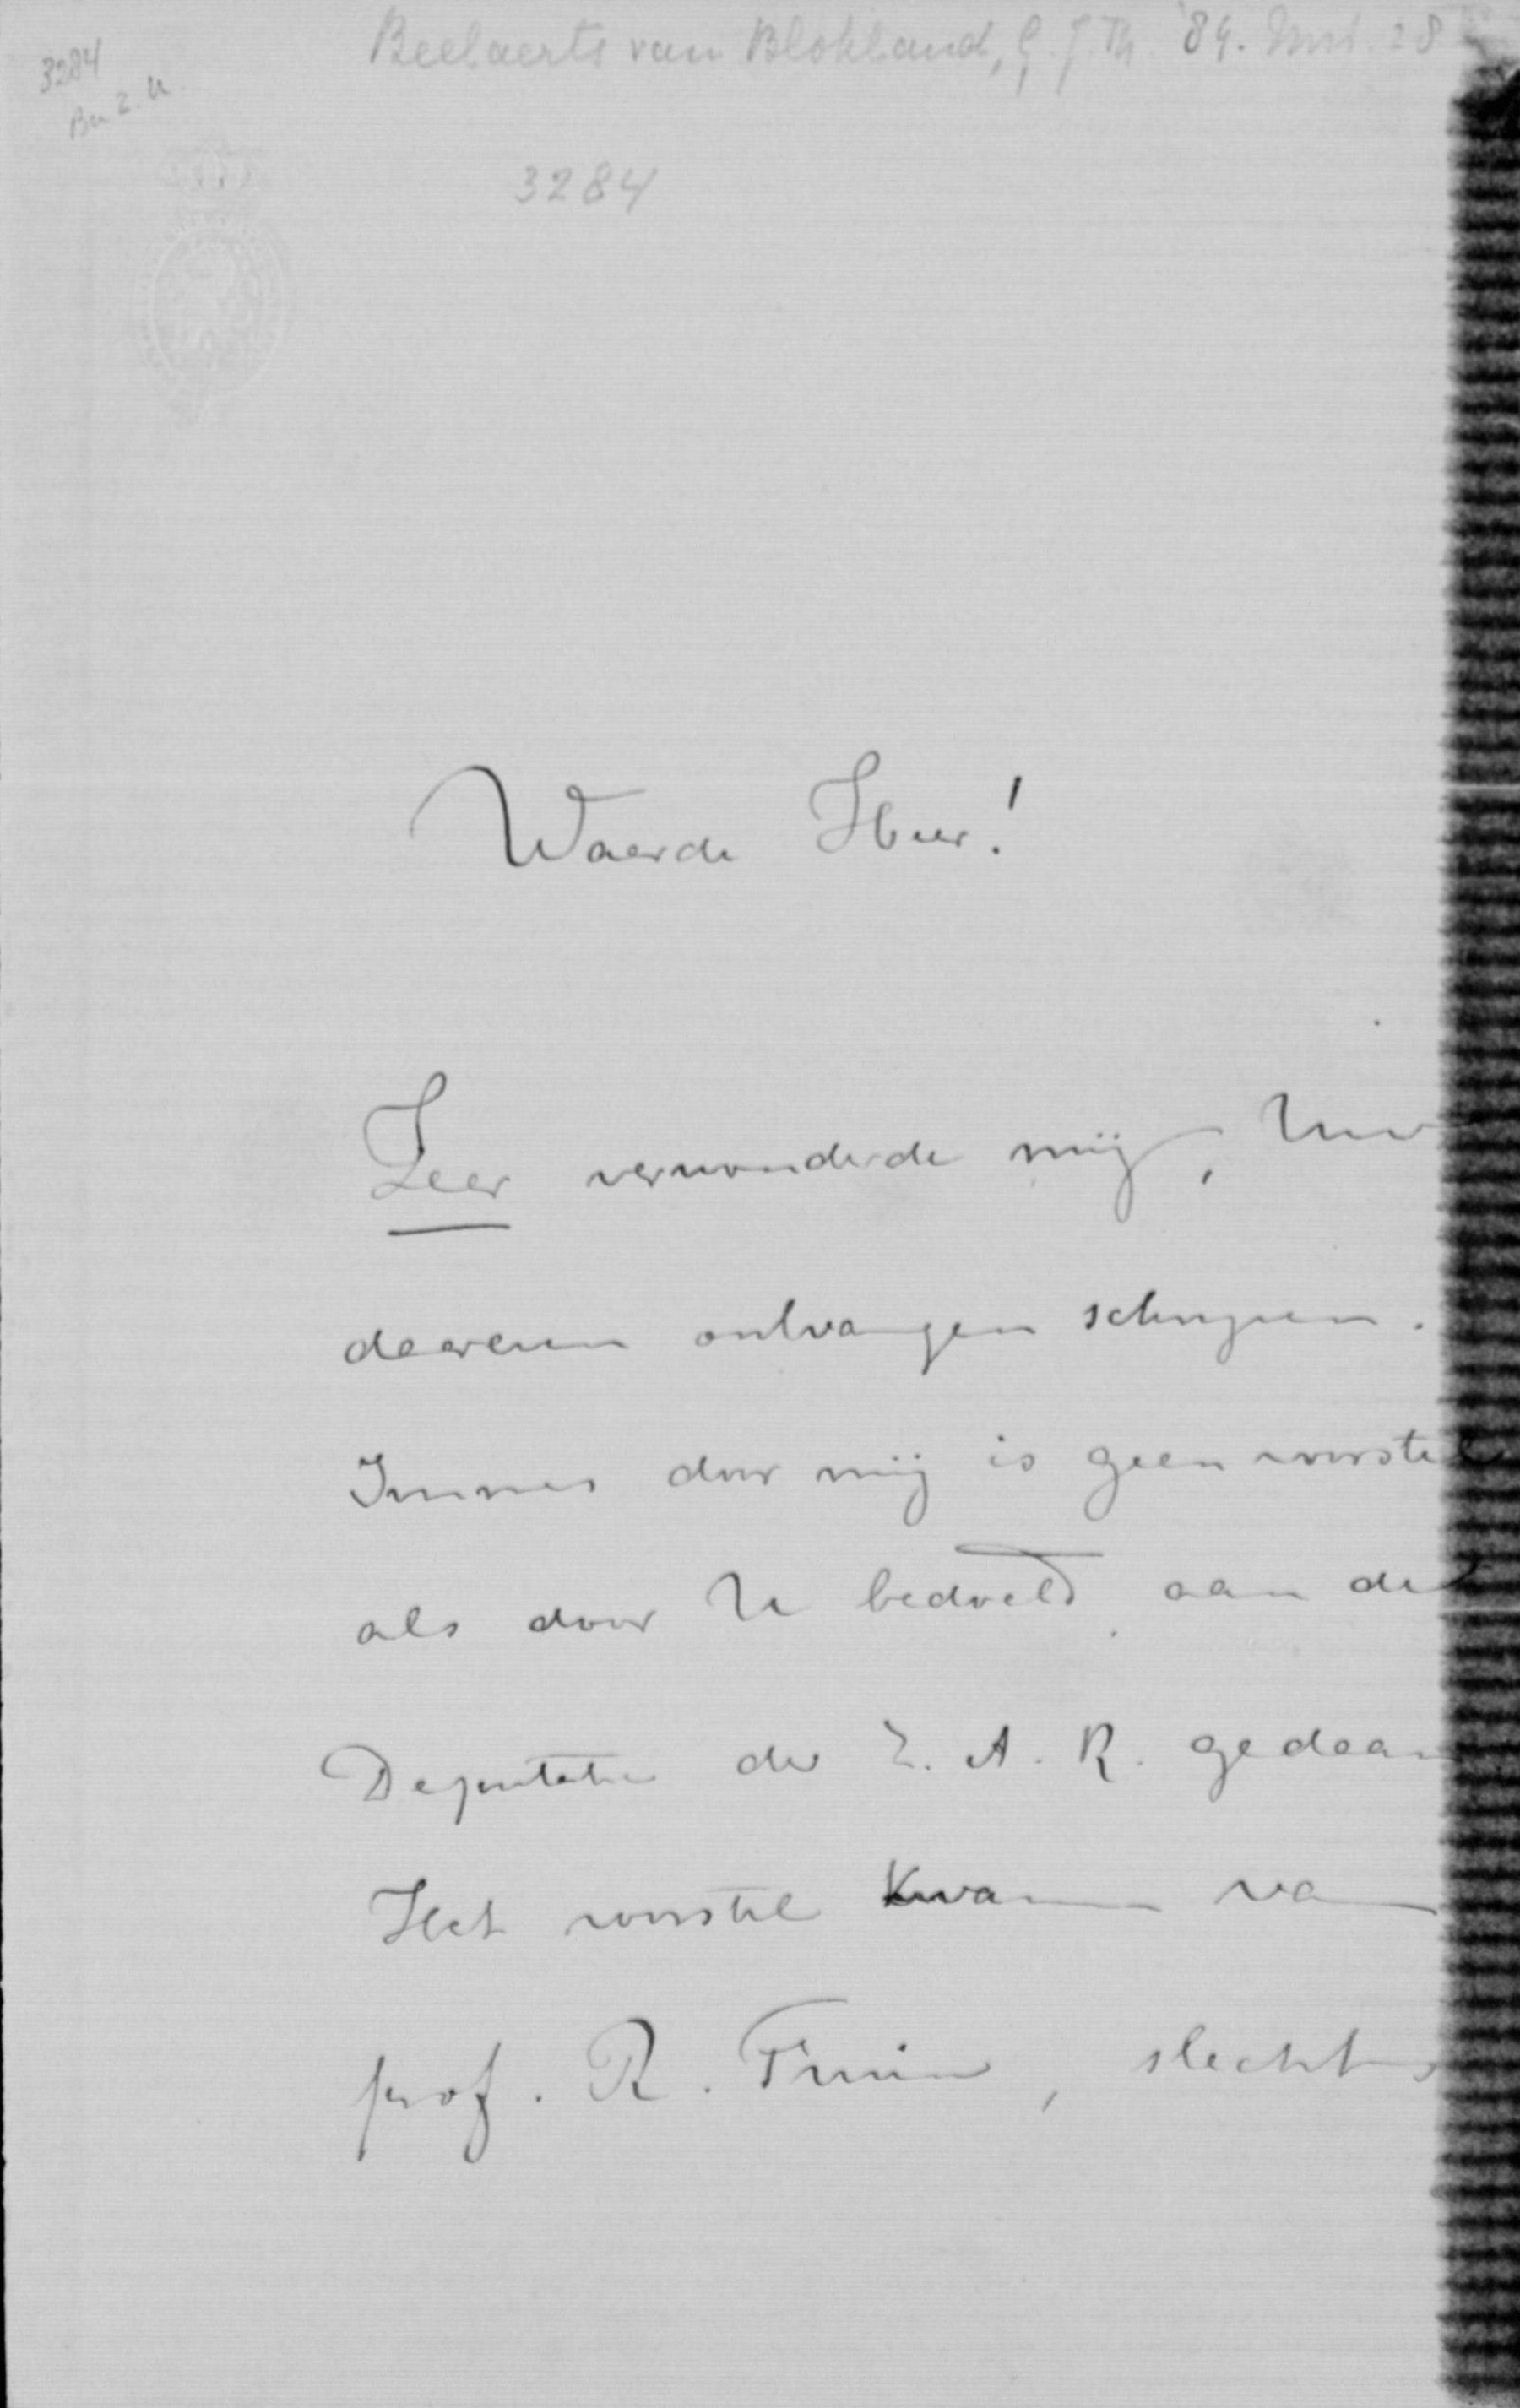 Beelaerts van Blokland, G. J. Th. '84. Juni. 28
3284
3284
Waarde Heer!
Zeer verwonderde mij, Uw
daareven ontvangen schrijven.
Immers door mij is geen voorstel
als door U bedoeld aan de
Deputatie der Z. A. R. gedaan
Het voorstel kwam van
prof. R. Fruin, slechts